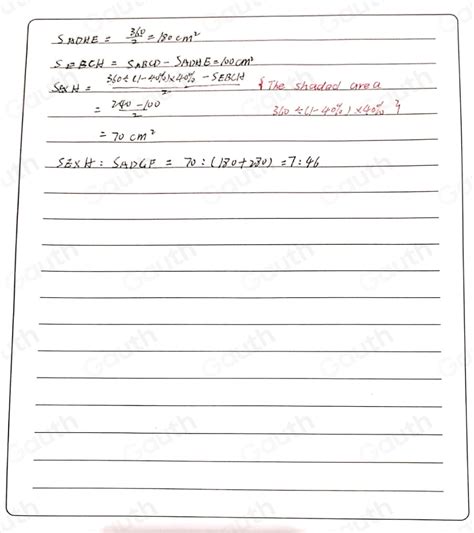 SADHE = 360/2 = 180cm²
SEBCH = SABCD - SADHE = 100cm²
SEXH = 360÷(1-40%)×40% - SEBCH / 2 { The shaded area
= 240-100 / 2 360÷(1-40%)×40% }
= 70 cm²
SEXH : SADGF = 70 : (180+280) = 7:46
Gauth